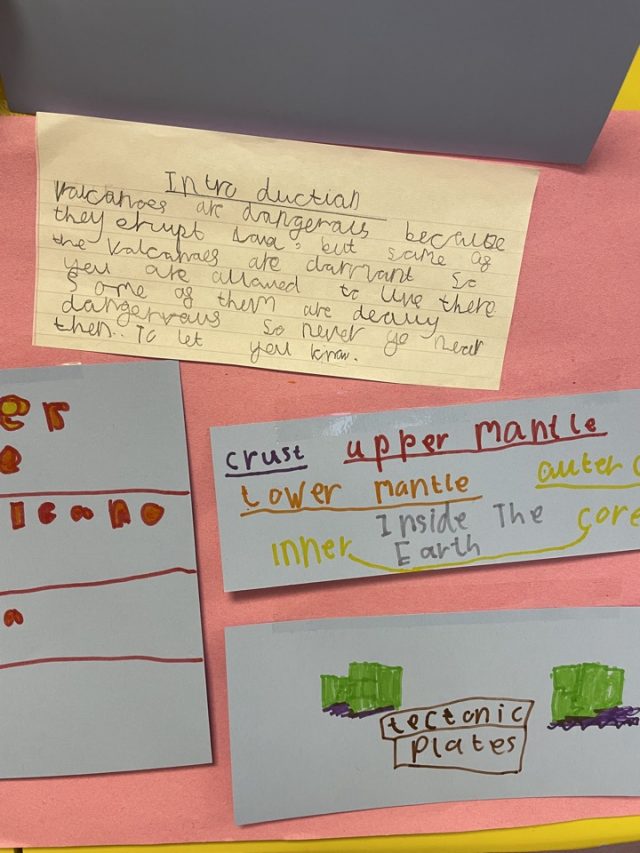 Introduction
Valcanoes are dangerous because
they erupt lava, but some of
the valcanoes are darmant so
you are allowed to live there
Some of them are deauy
dangerous so never go near
them. To let you know.
er
e
lcano
a
crust upper mantle
lower mantle outer c
Inside The
inner Earth core
tectonic
plates